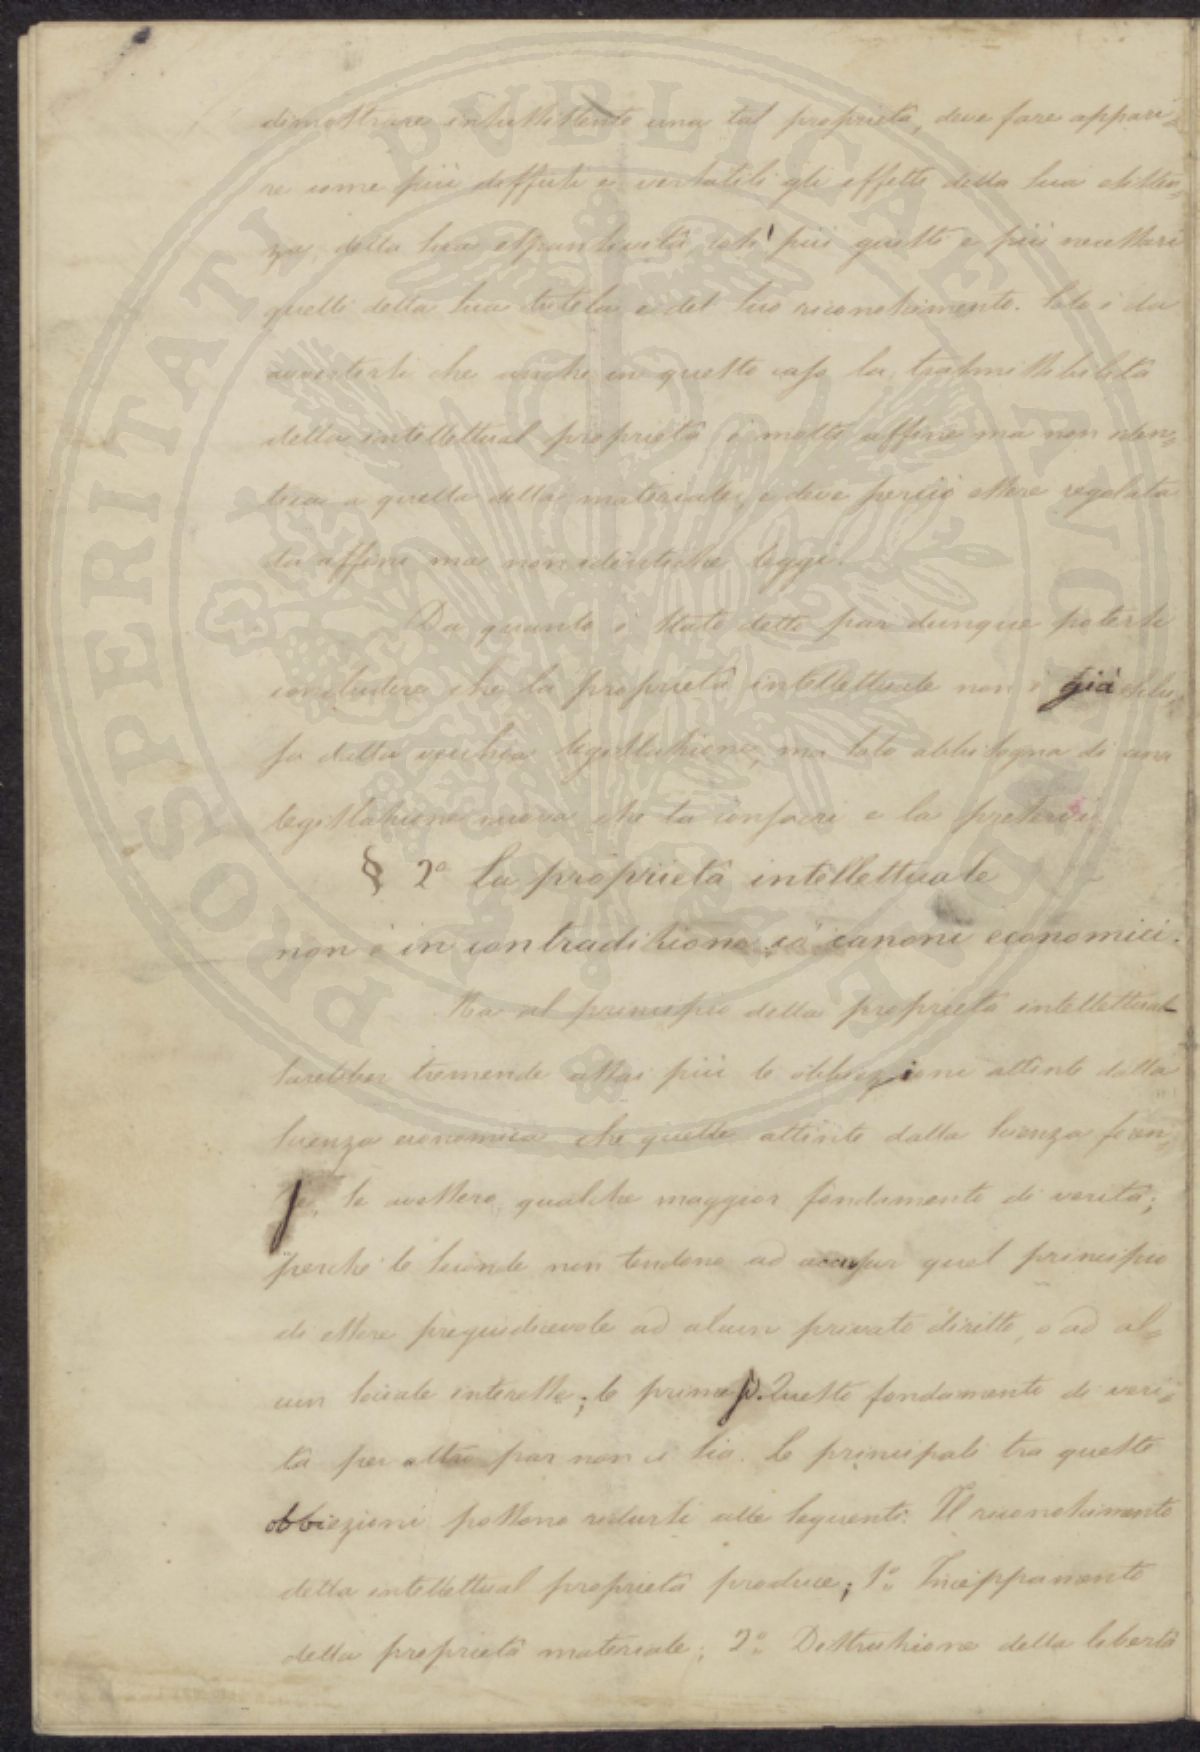 dimostrare insussistente una tal proprietà, deve fare appari=
re come più diffusi e versatili gli effetti della sua esisten=
za, della sua espansività, così più giusti e più necessari
quelli della sua tutela e del suo riconoscimento. Solo è da
avvertirsi che anche in questo caso la trasmissibilità
della intellettual proprietà è molto affine ma non iden=
tica a quella della materiale, e deve perciò essere regolata
da affini ma non identiche leggi.
Da quanto è stato detto par dunque potersi
concludere che la proprietà intellettuale non è già esclu=
sa dalla vecchia legislazione, ma solo abbisogna di una
legislazione nuova che la
§ 2º La proprietà intellettuale
non è in contradizione co' canoni economici.
Ma al principio della proprietà intellettual
sarebber tremende assai più le obbiezioni attinte dalla
scienza economica che quelle attinte dalla scienza foren=
se, se avessero qualche maggior fondamento di verità;
perchè le seconde non tendono ad accusar quel principio
di essere pregiudicevole ad alcun privato diritto, o ad al=
cun sociale interesse; le prime sì. Questo fondamento di veri=
tà per altro par non ci sia. Le principali tra queste
obbiezioni possono ridursi alle seguenti: Il riconoscimento
della intellettual proprietà produce; 1º Inceppamento
della proprietà materiale; 2º Distruzione della libertà
PROSPERITATI PVBLICAE AVGENDAE